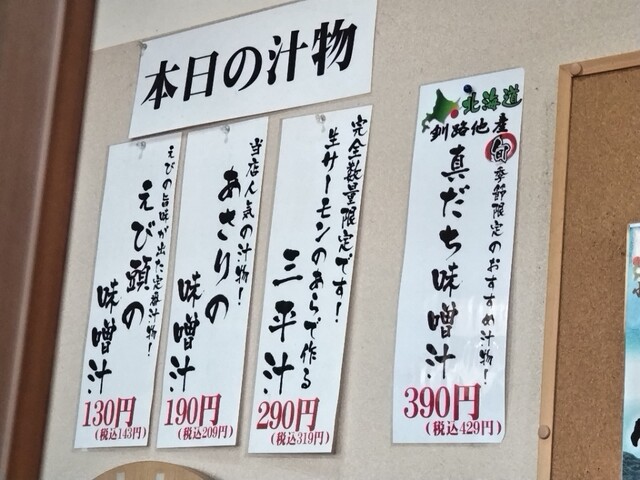 本日の汁物
北海道
釧路他産
旬
季節限定のおすすめ汁物!
真だち味噌汁
390円
(税込429円)
完全数量限定です!
生サーモンのあらで作る
三平汁
290円
(税込319円)
当店人気の汁物!
あさりの
味噌汁
190円
(税込209円)
えびの旨味が出た定番汁物!
えび頭の
味噌汁
130円
(税込143円)